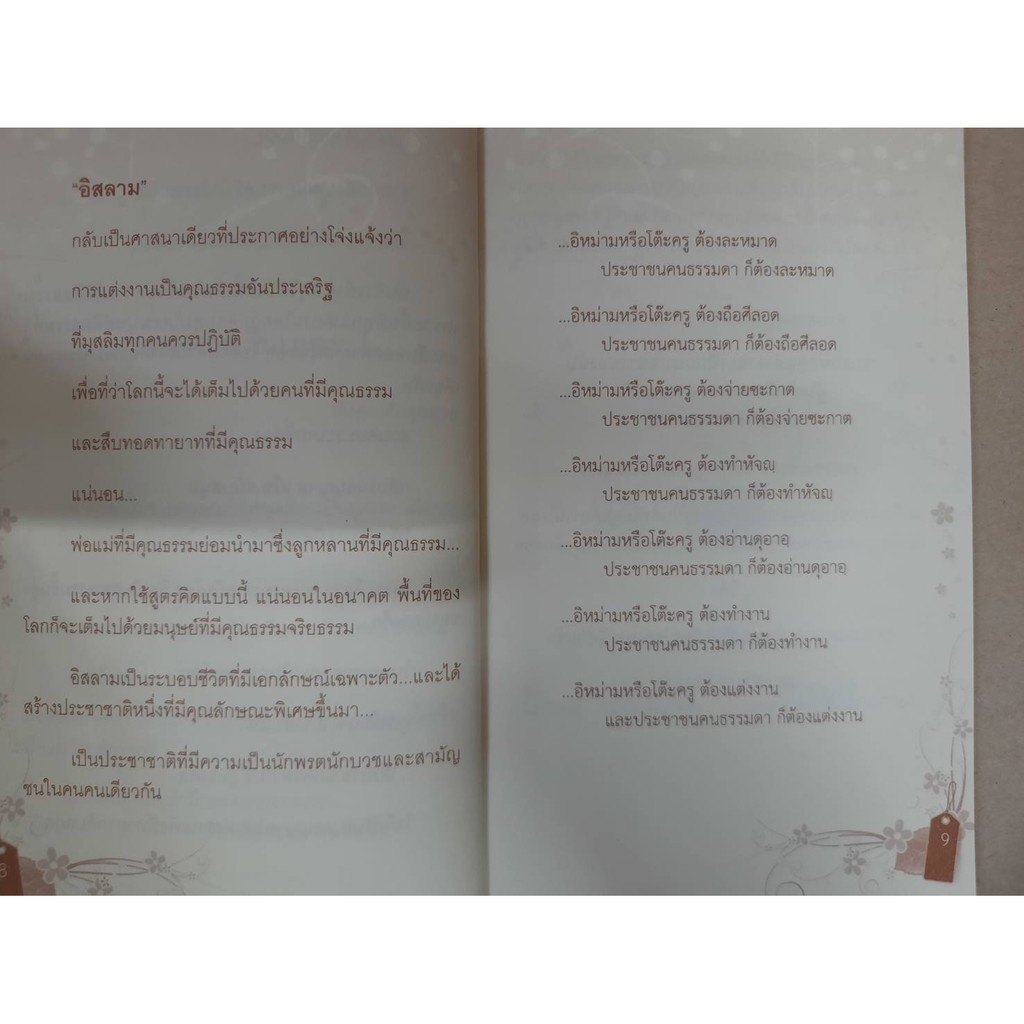 “อิสลาม”
กลับเป็นศาสนาเดียวที่ประกาศอย่างโจ่งแจ้งว่า
การแต่งงานเป็นคุณธรรมอันประเสริฐ
ที่มุสลิมทุกคนควรปฏิบัติ
เพื่อที่ว่าโลกนี้จะได้เต็มไปด้วยคนที่มีคุณธรรม
และสืบทอดทายาทที่มีคุณธรรม
แน่นอน...
พ่อแม่ที่มีคุณธรรมย่อมนำมาซึ่งลูกหลานที่มีคุณธรรม...
และหากใช้สูตรคิดแบบนี้ แน่นอนในอนาคต พื้นที่ของ
โลกก็จะเต็มไปด้วยมนุษย์ที่มีคุณธรรมจริยธรรม
อิสลามเป็นระบอบชีวิตที่มีเอกลักษณ์เฉพาะตัว...และได้
สร้างประชาชาติหนึ่งที่มีคุณลักษณะพิเศษขึ้นมา...
เป็นประชาชาติที่มีความเป็นนักพรตนักบวชและสามัญ
ชนในคนคนเดียวกัน
8
...อิหม่ามหรือโต๊ะครู ต้องละหมาด
ประชาชนคนธรรมดา ก็ต้องละหมาด
...อิหม่ามหรือโต๊ะครู ต้องถือศีลอด
ประชาชนคนธรรมดา ก็ต้องถือศีลอด
...อิหม่ามหรือโต๊ะครู ต้องจ่ายซะกาต
ประชาชนคนธรรมดา ก็ต้องจ่ายซะกาต
...อิหม่ามหรือโต๊ะครู ต้องทำหัจญฺ
ประชาชนคนธรรมดา ก็ต้องทำหัจญฺ
...อิหม่ามหรือโต๊ะครู ต้องอ่านดุอาอฺ
ประชาชนคนธรรมดา ก็ต้องอ่านดุอาอฺ
...อิหม่ามหรือโต๊ะครู ต้องทำงาน
ประชาชนคนธรรมดา ก็ต้องทำงาน
...อิหม่ามหรือโต๊ะครู ต้องแต่งงาน
และประชาชนคนธรรมดา ก็ต้องแต่งงาน
9